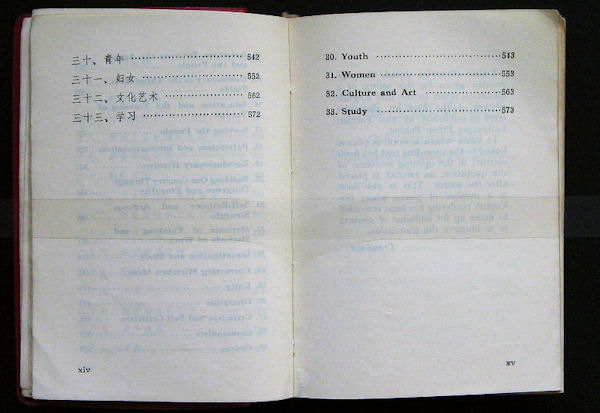 三十、青年 ⋯⋯⋯⋯⋯⋯⋯⋯⋯⋯ 542
三十一、妇女 ⋯⋯⋯⋯⋯⋯⋯⋯⋯ 552
三十二、文化艺术 ⋯⋯⋯⋯⋯⋯⋯ 562
三十三、学习 ⋯⋯⋯⋯⋯⋯⋯⋯⋯ 572
xiv
30. Youth ⋯⋯⋯⋯⋯⋯⋯⋯⋯⋯ 543
31. Women ⋯⋯⋯⋯⋯⋯⋯⋯⋯ 553
32. Culture and Art ⋯⋯⋯⋯⋯⋯ 563
33. Study ⋯⋯⋯⋯⋯⋯⋯⋯⋯⋯ 573
xv